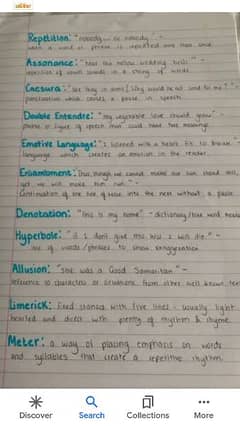 Repetition: "nobody... oh nobody" -
when a word or phrase is repeated more than once
Assonance: "Hear the mellow wedding bells" -
repetition of vowel sounds in a string of words
Caesura: "See they in some/ Stay would he not send to me?" -
punctuation which causes a pause in speech
Double Entendre: "my vegetable love should grow" -
phrase or figure of speech that could have two meanings
Emotive Language: "I learned with a heart fit to break"
language which creates an emotion in the reader
Enjambment: Thus though we cannot make our sun stand still,
yet we will make him run." -
Continuation of one line of verse into the next without a pause
Denotation: "this is my home" - dictionary/true word
Hyperbole: "if I don't give this kiss I will die" -
use of words/phrases to show exaggeration
Allusion: "She was a Good Samaritan" -
reference to characters or from other well known
Limerick: Fixed stanza with five lines - usually light
hearted and direct with plenty of rhythm & rhyme
Meter: a way of placing emphasis on words
and syllables that create a repetitive rhythm
Discover
Search
Collections
More